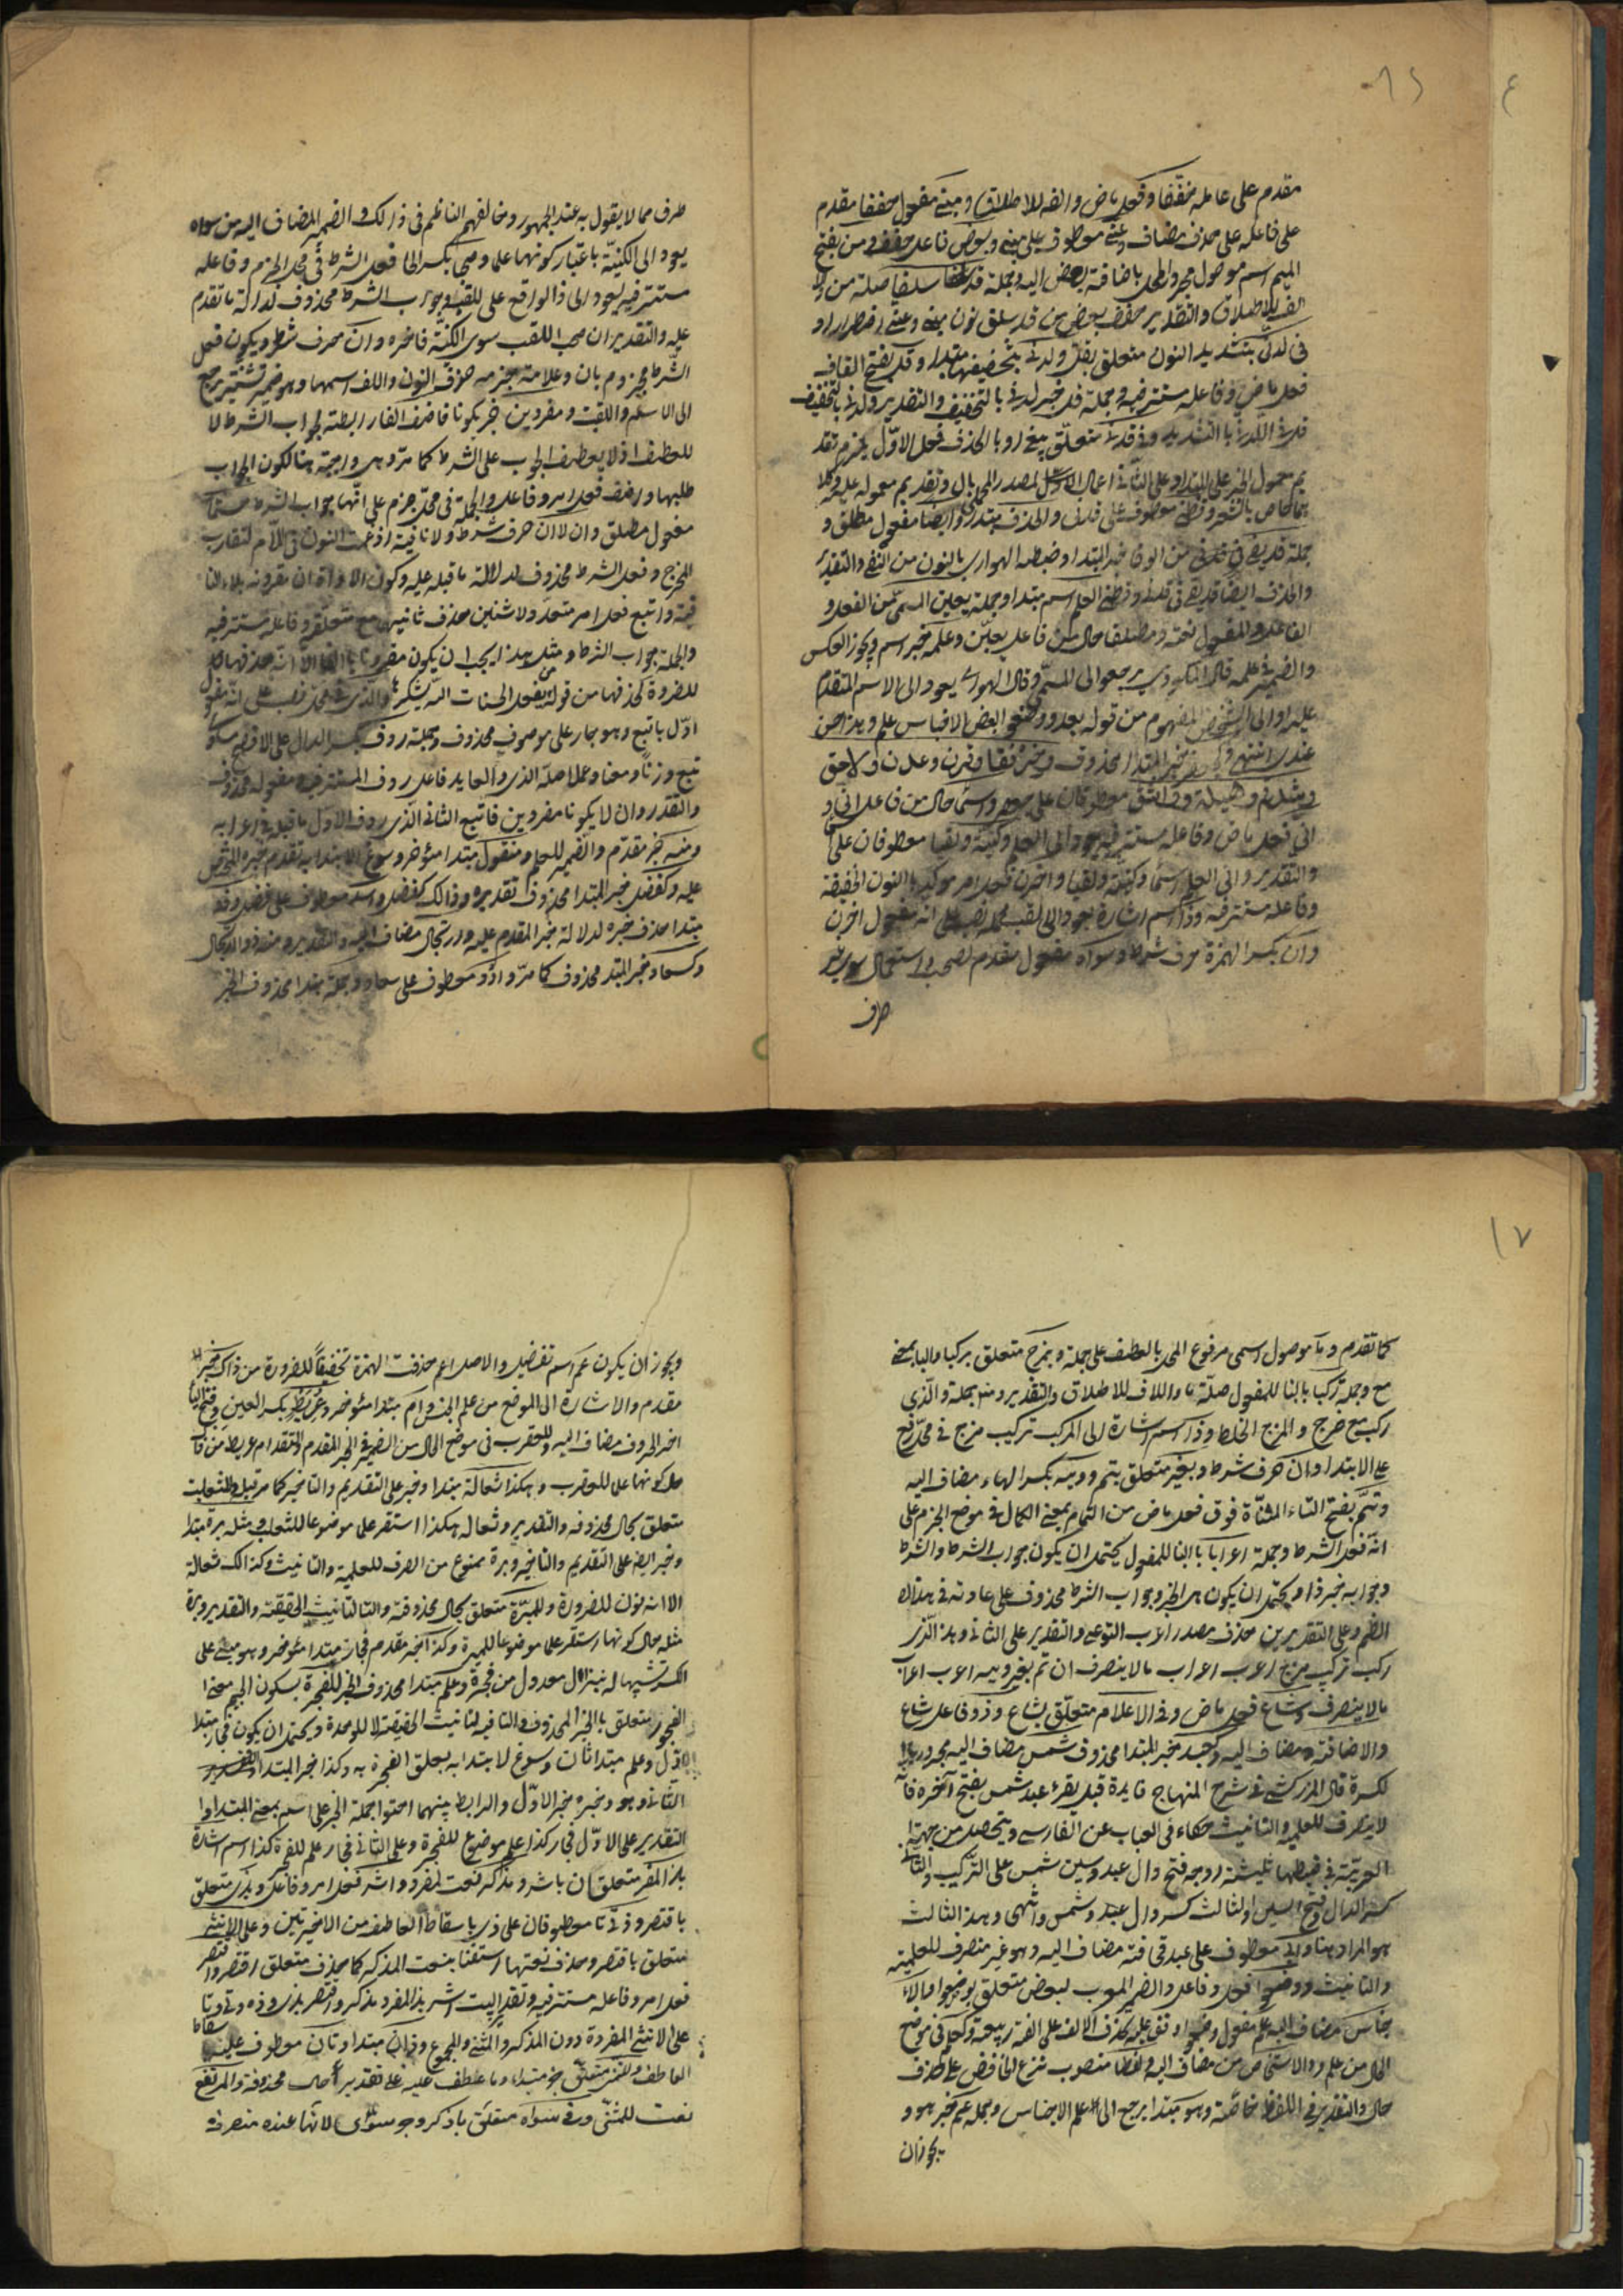 مقدم على عامله مخففا وفعل ماض والفه للاطلاق ومنى مفعول خففا مقدم
على فاعله على حذف مضاف وعنى معطوف على منى وبعض فاعل خففا ومن بفتح
الميم اسم موصول مجرور المحل باضافة بعض اليه وجملة قد سلفا صلة من و
الفه للاطلاق والتقدير خفف بعض من قد سلف نون منى وعنى اضطرارا و
فى لدنى بتشديد النون متعلق بقل ولدنى بتخفيفها مبتدا وقل بفتح القاف
فعل ماض وفاعله مستتر فيه وجملة قل خبر لدنى بالتخفيف والتقدير ولدنى بالتخفيف
قل فى لدنى بالتشديد وفى قدنى متعلق بيفى وبالحذف فعلى الاول يلزم تقد
يم معمول الخبر على المبتدا وعلى الثانى اعمال المصدر المحلى بال وتقديم معموله عليه وكلا
هما خاص بالشعر وقطنى معطوف على قدنى والحذف مبتدا وايضا مفعول مطلق و
جملة قد يفى فى من الوفا خبر المبتدا وضبطه الهوارى بالنون من النفى والتقدير
والحذف ايضا قد يفى فى قدنى وقطنى العلم اسم مبتدا وجملة يعين المسمى من الفعل و
الفاعل والمفعول نعته ومطلقا حال من فاعل يعين وعلمه خبر اسم ويجوز العكس
والضمير فى علمه قال المكودى يرجع الى المسمى وقال الهوارى يعود الى الاسم المتقدم
عليه او الى الشخص المفهوم من قوله بعد ووضعوا لبعض الاجناس علم وهذا احسن
عندى انتهى وكجعفر خبر المبتدا محذوف وخرنقا وقرن وعدن ولاحق
وشذقم وهيلة وواشق معطوفات على جعفر واسما حال من فاعل اتى و
اتى فعل ماض وفاعله مستتر فيه يعود الى العلم وكنية ولقبا معطوفان على اسما
والتقدير واتى العلم اسما وكنية ولقبا واخرن فعل امر موكد بالنون الخفيفة
وفاعله مستتر فيه وذا اسم اشارة يعود الى لقب محله نصب على انه مفعول اخرن
وان بكسر الهمزة حرف شرط وسواه مفعول مقدم لصحب واستعمال سوى غير
ظرف
ظرف مما لا يقول به عند الجمهور وخالفهم الناظم فى ذلك والضمير المضاف اليه من سواه
يعود الى الكنية باعتبار كونها علما وصحب بكسر الحا فعل الشرط فى محل الجزم وفاعله
مستتر فيه يعود الى ذا الواقع على اللقب وجواب الشرط محذوف لدلالة ما تقدم
عليه والتقدير ان صحب اللقب سوى الكنية فاخره وان حرف شرط ويكون فعل
الشرط مجزوم بان وعلامة جزمه حذف النون والالف اسمها وهو ضمير تثنية يرجع
الى الاسم واللقب ومفردين خبر يكونا فاضف الفا رابطة لجواب الشرط لا
للعطف اذ لا يعطف الجواب على الشرط كما مر وهى واجبة هنا لكون الجواب
طلبيا واضف فعل امر وفاعل والجملة فى محل جزم على انها جواب الشرط حتما
مفعول مطلق وان لا ان حرف شرط ولا نافية ادغمت النون فى اللام لتقارب
المخرج وفعل الشرط محذوف لدلالة ما قبله عليه وكون الاداة ان مقرونة بلا النا
فية واتبع فعل امر متعد ولاثنين حذف ثانيهما مع متعلقه وفاعله مستتر فيه
والجملة جواب الشرط ومثل هذا يجب ان يكون مقرونا بالفا الا انه حذفها
للضرورة كحذفها من قوله من يفعل الحسنات الله يشكرها والذى فى محل نصب على انه مفعول
اول باتبع وهو جار على موصوف محذوف وجملة ردف بكسر الدال على الافصح
تبع وزنا ومعنا وعملا صلة الذى والعايد فاعل ردف المستتر فيه ومفعوله محذوف
والتقدير وان لا يكونا مفردين فاتبع الثانى الذى ردف الاول ما قبله فى اعرابه
ومنه خبر مقدم والضمير للعلم ومنقول مبتدا مؤخر وسوغ الابتدا به تقدم خبره المجرور
عليه وكفضل خبر المبتدا محذوف تقديره وذلك كفضل واسد معطوف على فضل وذو
مبتدا حذف خبره لدلالة خبر المقدم عليه وارتجال مضاف اليه والتقدير ومنه ذو الارتجال
وكسعاد خبر المبتدا محذوف كما مر وادد معطوف على سعاد وجملة مبتدا محذوف الخبر
١٧
كما تقدم وما موصول اسمى مرفوع المحل بالعطف على جملة وبمزج متعلق بركبا والبا بمعنى
مع وجملة ركبا بالبنا للمفعول صلة ما والالف للاطلاق والتقدير ومنه جملة والذى
ركب مع مزج والمزج الخلط وذا اسم اشارة الى المركب تركيب مزج فى محل رفع
على الابتدا وان حرف شرط وبغير متعلق بتم وويه بكسر الهاء مضاف اليه
وتم بفتح التاء المثناة فوق فعل ماض من التمام بمعنى الكمال فى موضع الجزم على
انه فعل الشرط وجملة اعربا بالبنا للمفعول يحتمل ان يكون جواب الشرط والشرط
وجوابه خبر ذا ويحتمل ان يكون هى الخبر وجواب الشرط محذوف على عادته فى هذا
النظم وعلى التقديرين حذف مصدر اعرب النوعى والتقدير على الثانى وهذا الذى
ركب تركيب مزج اعرب اعراب ما لا ينصرف ان تم بغير ويه اعرب اعراب
ما لا ينصرف وشاع فعل ماض وفى الاعلام متعلق بشاع وذو فاعل شاع
والاضافة مضاف اليه وكعبد خبر المبتدا محذوف شمس مضاف اليه مجرور بالـ
لكسرة قال الزركشى فى شرح المنهاج فايدة قيل يقرء عبد شمس بفتح آخره فانه
لا ينصرف للعلمية والتانيث حكاه فى العباب عن الفارسى ويتحصل من جهة
العربية فى ضبطها ثلثة اوجه فتح دال عبد وسين شمس على التركيب والثانى
كسر الدال وفتح السين والثالث كسر دال عبد وشمس وانتهى وهذا الثالث
هو المراد هنا وابى معطوف على عبد قحافة مضاف اليه وهو غير منصرف للعلمية
والتانيث ووضعوا فعل وفاعل والضمير للعرب لبعض متعلق بوضعوا والا
جناس مضاف اليه علم مفعول وضعوا وقف عليه بحذف الالف على لغة ربيعة وكعلم فى موضع
الحال من علم والاشخاص من مضاف اليه ولفظا منصوب بنزع الخافض على حذف
حال والتقدير فى اللفظ خاصة وهو مبتدا يرجع الى علم الاجناس وجملة عم خبر هو و
يجوز ان
ويجوز ان يكون عم اسم تفضيل والاصل اعم حذفت الهمزة تخفيفا للضرورة من ذاك خبر
مقدم والاشارة الى الموضع من علم الجنس وام مبتدا مؤخر وعريط بكسر العين وفتح اليا
اخر الحروف مضاف اليه وللعقرب فى موضع الحال من الضمير فى الخبر المقدم والتقدير ام عريط من ذاك
حال كونها علما للعقرب وهكذا ثعالة مبتدا وخبر على التقديم والتاخير كما مر قبل وللثعلب
متعلق بحال محذوفه والتقدير وثعالة هكذا استقر علما موضوعا للثعلب ومثله برة مبتدا
وخبر ايضا على التقديم والتاخير وبرة ممنوع من الصرف للعلمية والتانيث وكذا لك ثعالة
الا انه نون للضرورة وللمبرة متعلق بحال محذوفة والتا لتانيث الحقيقة والتقدير وبرة
مثله حال كونها استقر علما موضوعا للمبرة وكذا خبر مقدم فجار مبتدا مؤخر وهو مبنى على
الكسر تشبيها له بنزال معدول من فجرة وعلم مبتدا محذوف الخبر للفجرة بسكون الجيم بمعنى
الفجور متعلق بالخبر المحذوف والتا فيه لتانيث الحقيقة لا للوحدة ويحتمل ان يكون فجار مبتدا
الاول وعلم مبتدا ثان وسوغ الابتدا به تعلق الفجرة به وكذا خبر المبتدا
الثانى وهو وخبره خبر الاول والرابط بينهما احتوا جملة الخبر على اسم بمعنى المبتدا و
التقدير على الاول فجار كذا علم موضوع للفجرة وعلى الثانى فجار علم للفجرة كذا اسم اشارة
بذا لمفرد متعلقان باشر ومذكر نعت لمفرد واشر فعل امر وفاعل وبذى متعلق
باقتصر وذه وتى تا معطوفان على ذى باسقاط العاطف من الاخيرتين وعلى الانثى
متعلق باقتصر وحذف نعتها استغنا بنعت المذكر كما حذف متعلق اقتصر واقتصر
فعل امر وفاعله مستتر فيه وتقدير البيت اشر بذا لمفرد مذكر واقتصر بذى وذه وتى وتا
على الانثى المفردة دون المذكر والمثنى والمجموع وذان مبتدا وتان معطوف عليه باسقاط
العاطف وللمثنى متعلق بخبر مبتدا وما عطف عليه على تقدير حال محذوفة والمرتفع
نعت للمثنى وفى سواه متعلق باذكر وجر سوى لانها عنده منصرفة